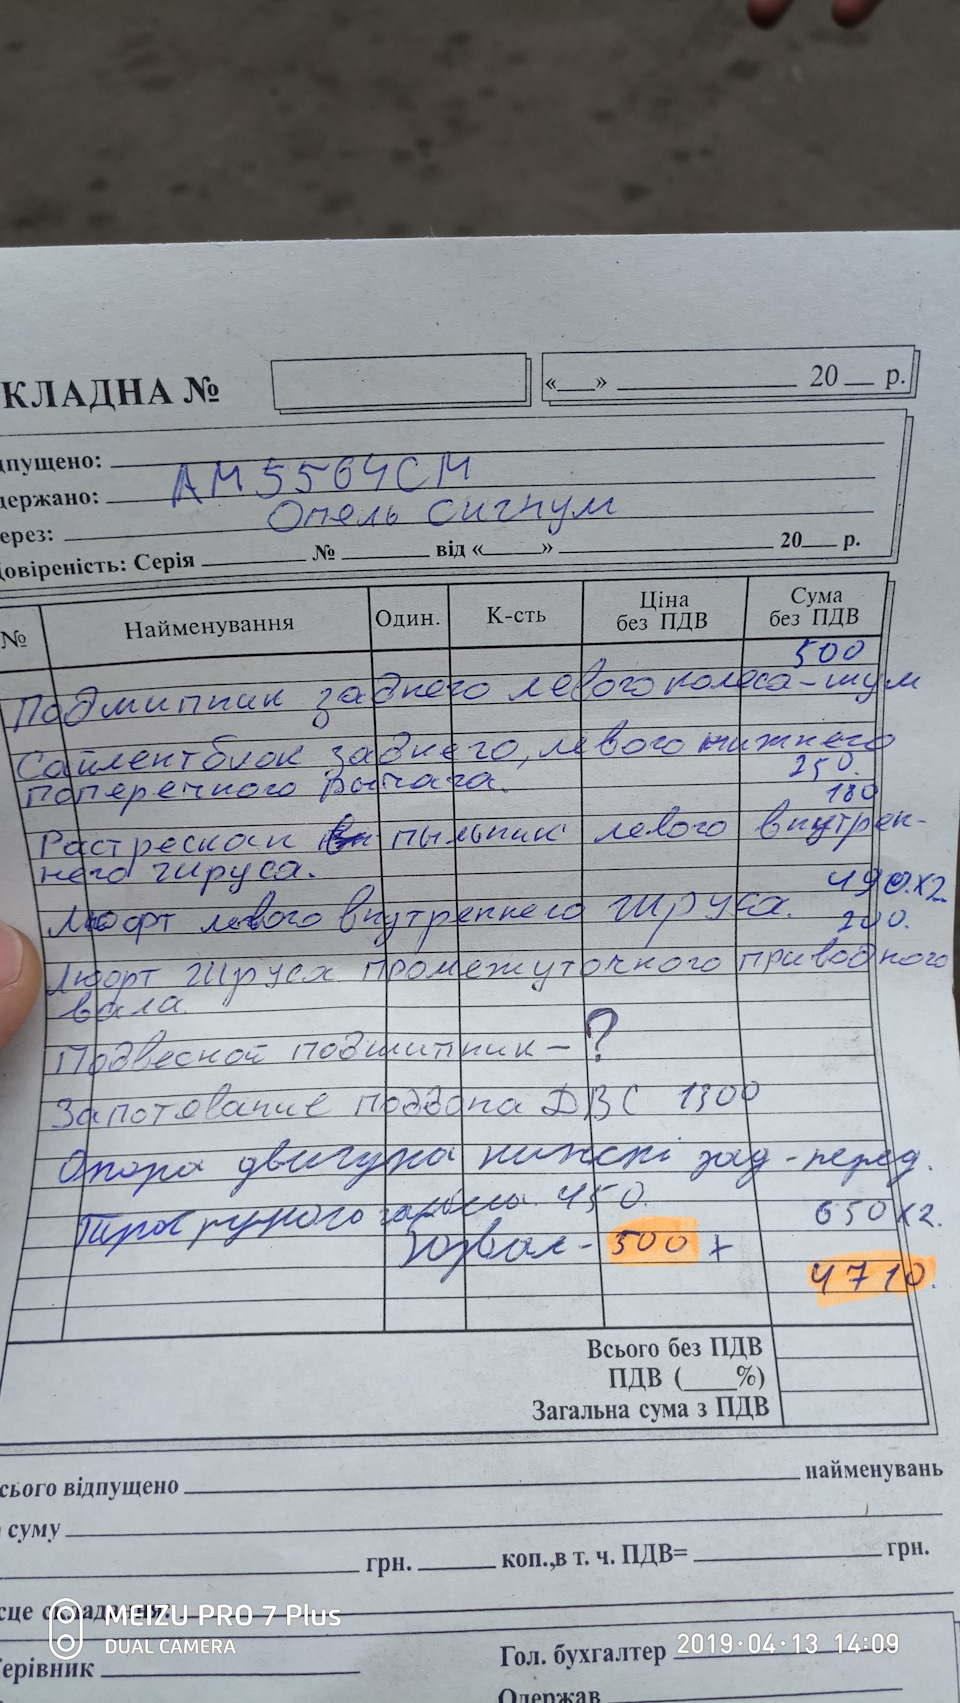 КЛАДНА №
«___» ___ 20 ___ р.
дпущено:
держано: АМ5564СМ
ерез: Опель сигнум
Довіреність: Серія ___ № ___ від «___» ___ 20___ р.
№ Найменування Один. К-сть Ціна без ПДВ Сума без ПДВ
500
Подшипник заднего левого колеса-шум
Сайлентблок заднего, левого нижнего
поперечного рычага. 250.
180
Растрескан пыльник левого внутрен-
него шруса.
490.х2
Люфт левого внутреннего шруса. 200.
Люфт шруса промежуточного приводного
вала.
Подвесной подшипник - ?
Запотевание поддона ДВС 1300
Опора двигуна нижні зад-перед.
Трос ручного 450. 650х2.
Розвал - 500 +
4710.
Всього без ПДВ
ПДВ (___%)
Загальна сума з ПДВ
сього відпущено ___ найменувань
суму
грн. ___ коп.,в т. ч. ПДВ= ___ грн.
сце складання:
MEIZU PRO 7 Plus
DUAL CAMERA
2019·04·13 14:09
ерівник
Гол. бухгалтер
Одержав